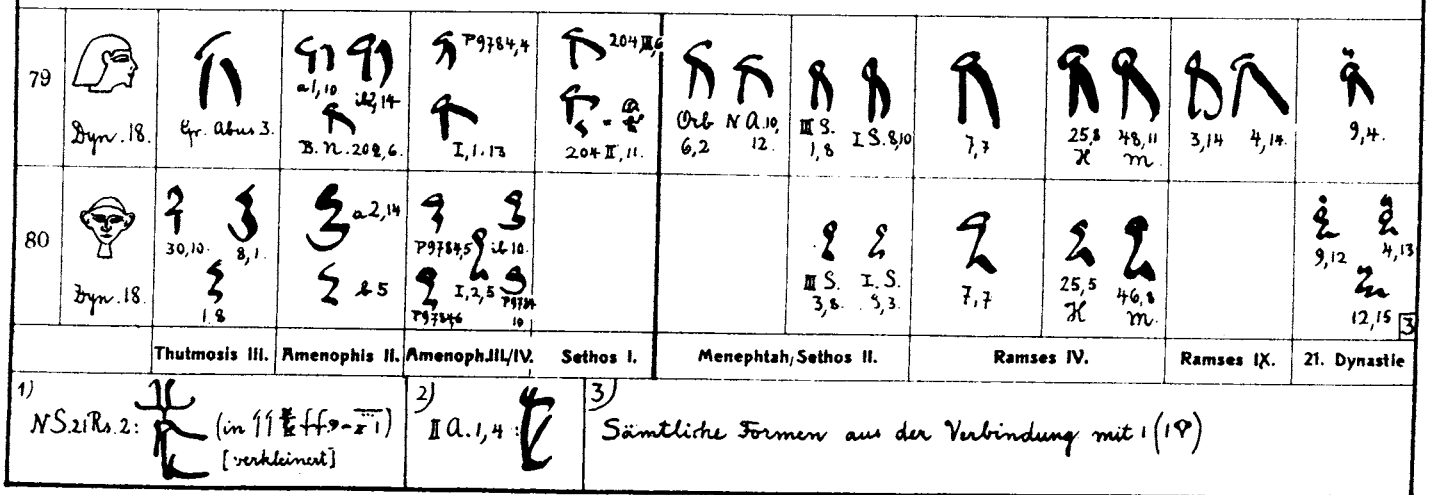 79
Dyn. 18.
Gr. Abus 3.
a 1, 10.
B. N. 202, 6.
P 9784, 4
I, 1. 13
204 II, 11.
Orb 6, 2
N A. 10, 12.
III S. 1, 8
I S. 8, 10
7, 7
25, 8 H
48, 11 M.
3, 14
4, 14.
9, 4.
80
Dyn. 18.
30, 10.
8, 1.
1. 8
a 2, 14
b 5
P 9784, 5
ib 10.
I, 2, 5
P 9784, 6
P 9784 10
III S. 3, 8.
I. S. 9, 3.
7, 7
25, 5 H
46, 8 M.
9, 12
4, 13
12, 15
3
Thutmosis III. Amenophis II. Amenoph.III./IV. Sethos I. Menephtah, Sethos II. Ramses IV. Ramses IX. 21. Dynastie
1) NS. 21 Rs. 2: (in
[verkleinert]
2) II A. 1, 4 :
3) Sämtliche Formen aus der Verbindung mit